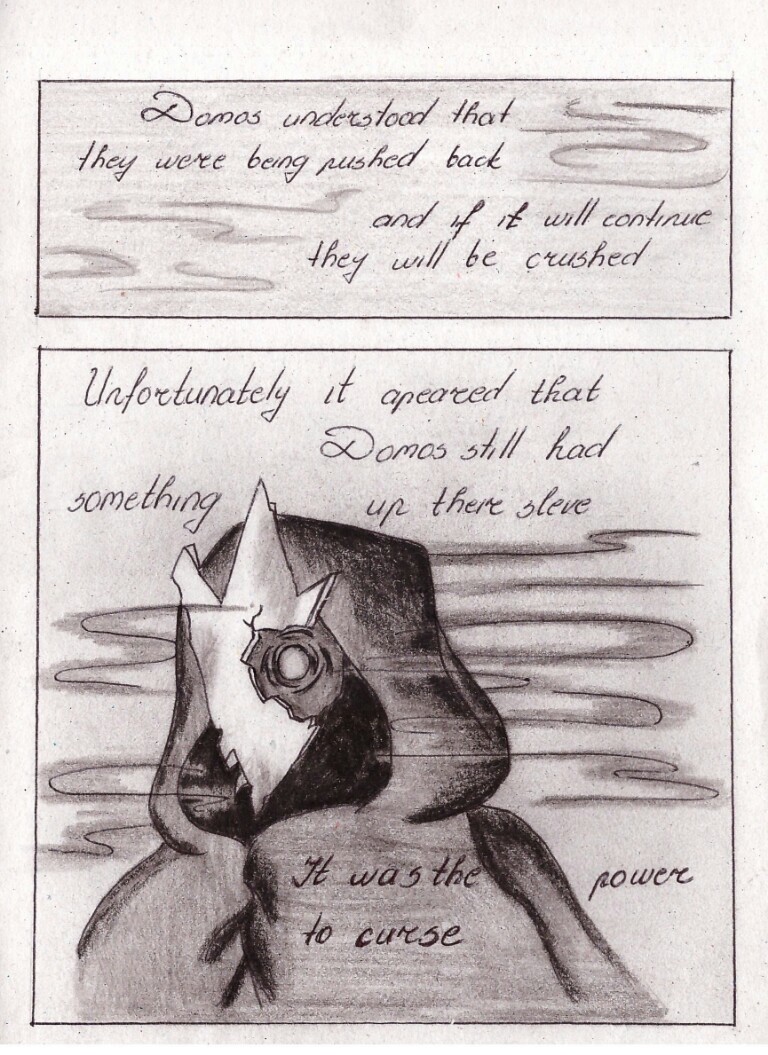 Domos understood that
they were being pushed back
and if it will continue
they will be crushed
Unfortunately it apeared that
Domos still had
something up there sleve
It was the power
to curse